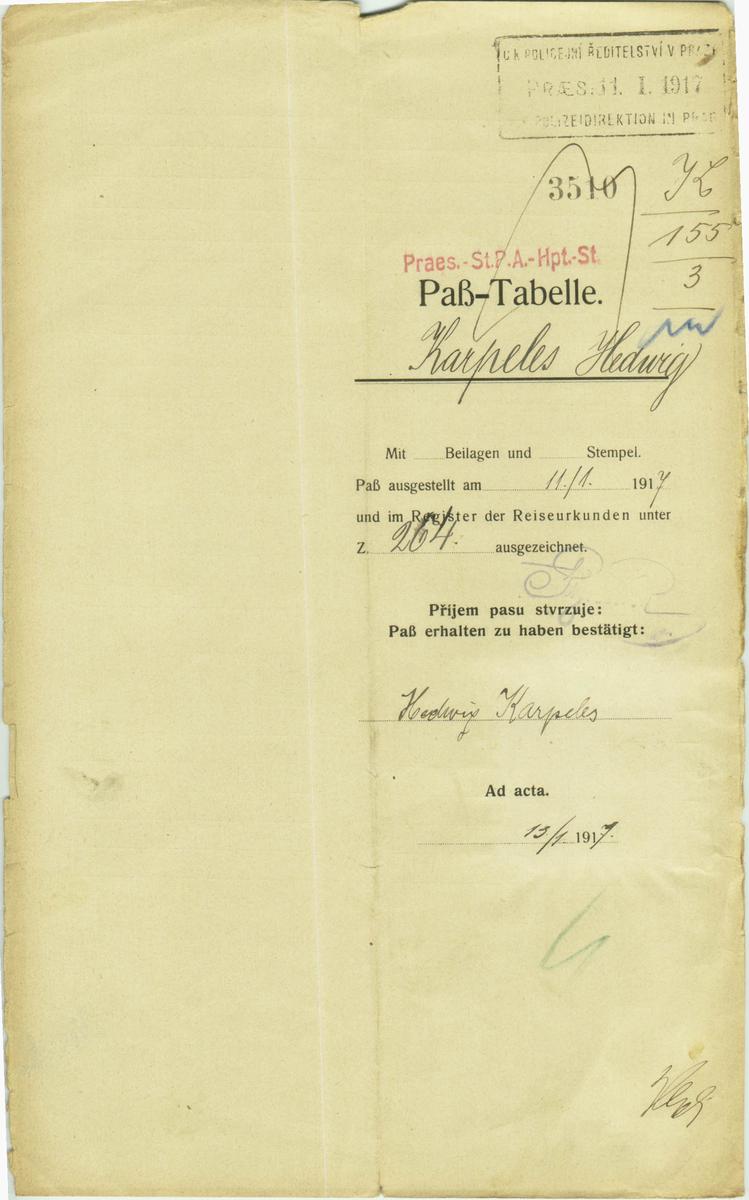 C.K. POLICEJNÍ ŘEDITELSTVÍ V PRAZE
PRÆS. 11. I. 1917
POLIZEIDIREKTION IN PRAG
3510
K
155
3
Praes.-St.P.A.-Hpt.-St.
Paß-Tabelle.
Karpeles Hedwig
Mit Beilagen und Stempel.
Paß ausgestellt am 11./1. 1917
und im Register der Reiseurkunden unter
Z. 264. ausgezeichnet.
Příjem pasu stvrzuje:
Paß erhalten zu haben bestätigt:
Hedwig Karpeles
Ad acta.
13/1. 1917.